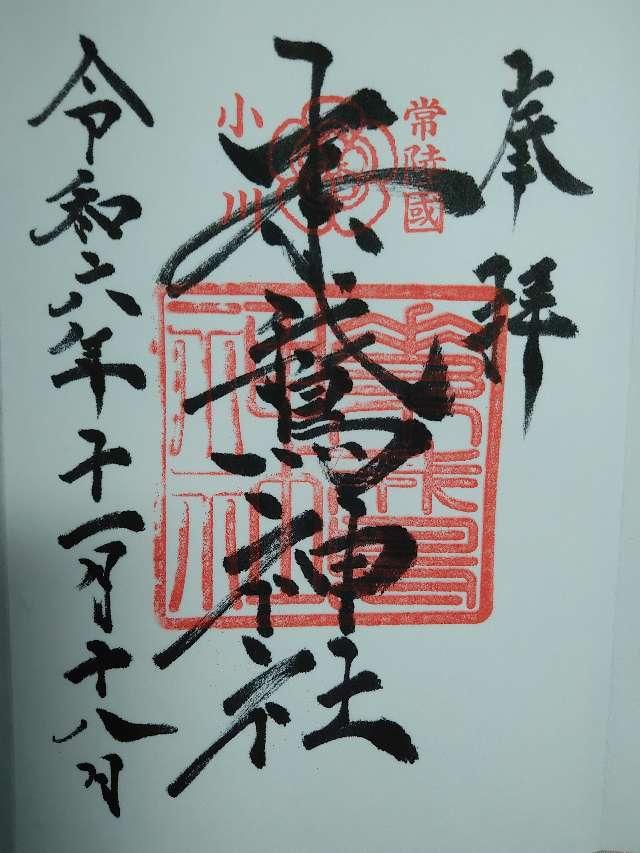 奉拝
常陸國
小川
素鵞神社
素鵞
神社
令和六年十一月十八日